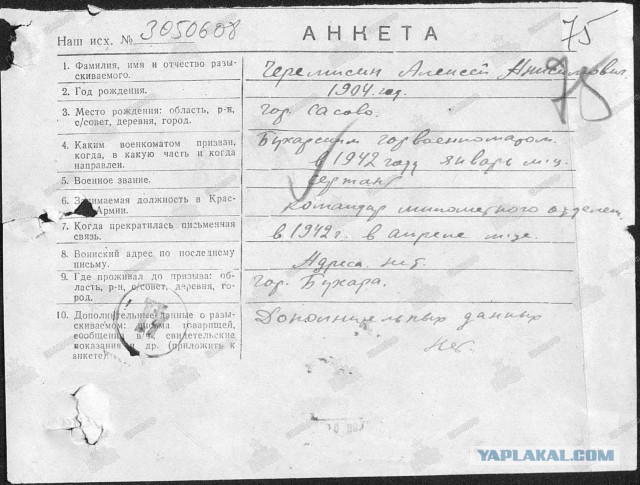 75
Наш исх. № 3050608
АНКЕТА
1. Фамилия, имя и отчество разы-
скиваемого.
Черемисин Алексей Анисимович.
2. Год рождения.
1904 год.
3. Место рождения: область, р-н,
с/совет, деревня, город.
гор. Сасово.
4. Каким военкоматом призван,
когда, в какую часть и когда
направлен.
Бухарским горвоенкоматом.
в 1942 году январь м-ц.
5. Военное звание.
сержант
6. Занимаемая должность в Крас-
Армии.
командир минометного отделен.
7. Когда прекратилась письменная
связь.
в 1942 г. в апреле м-це.
8. Воинский адрес по последнему
письму.
Адреса нет.
9. Где проживал до призыва: об-
ласть, р-н, с/совет, деревня, го-
род.
гор. Бухара.
10. Дополнительные данные о разы-
скиваемом: письма товарищей,
сообщения в/ч, свидетельские
показания и др. (приложить к
анкете).
Дополнительных данных
нет.
YAPLAKAL.COM